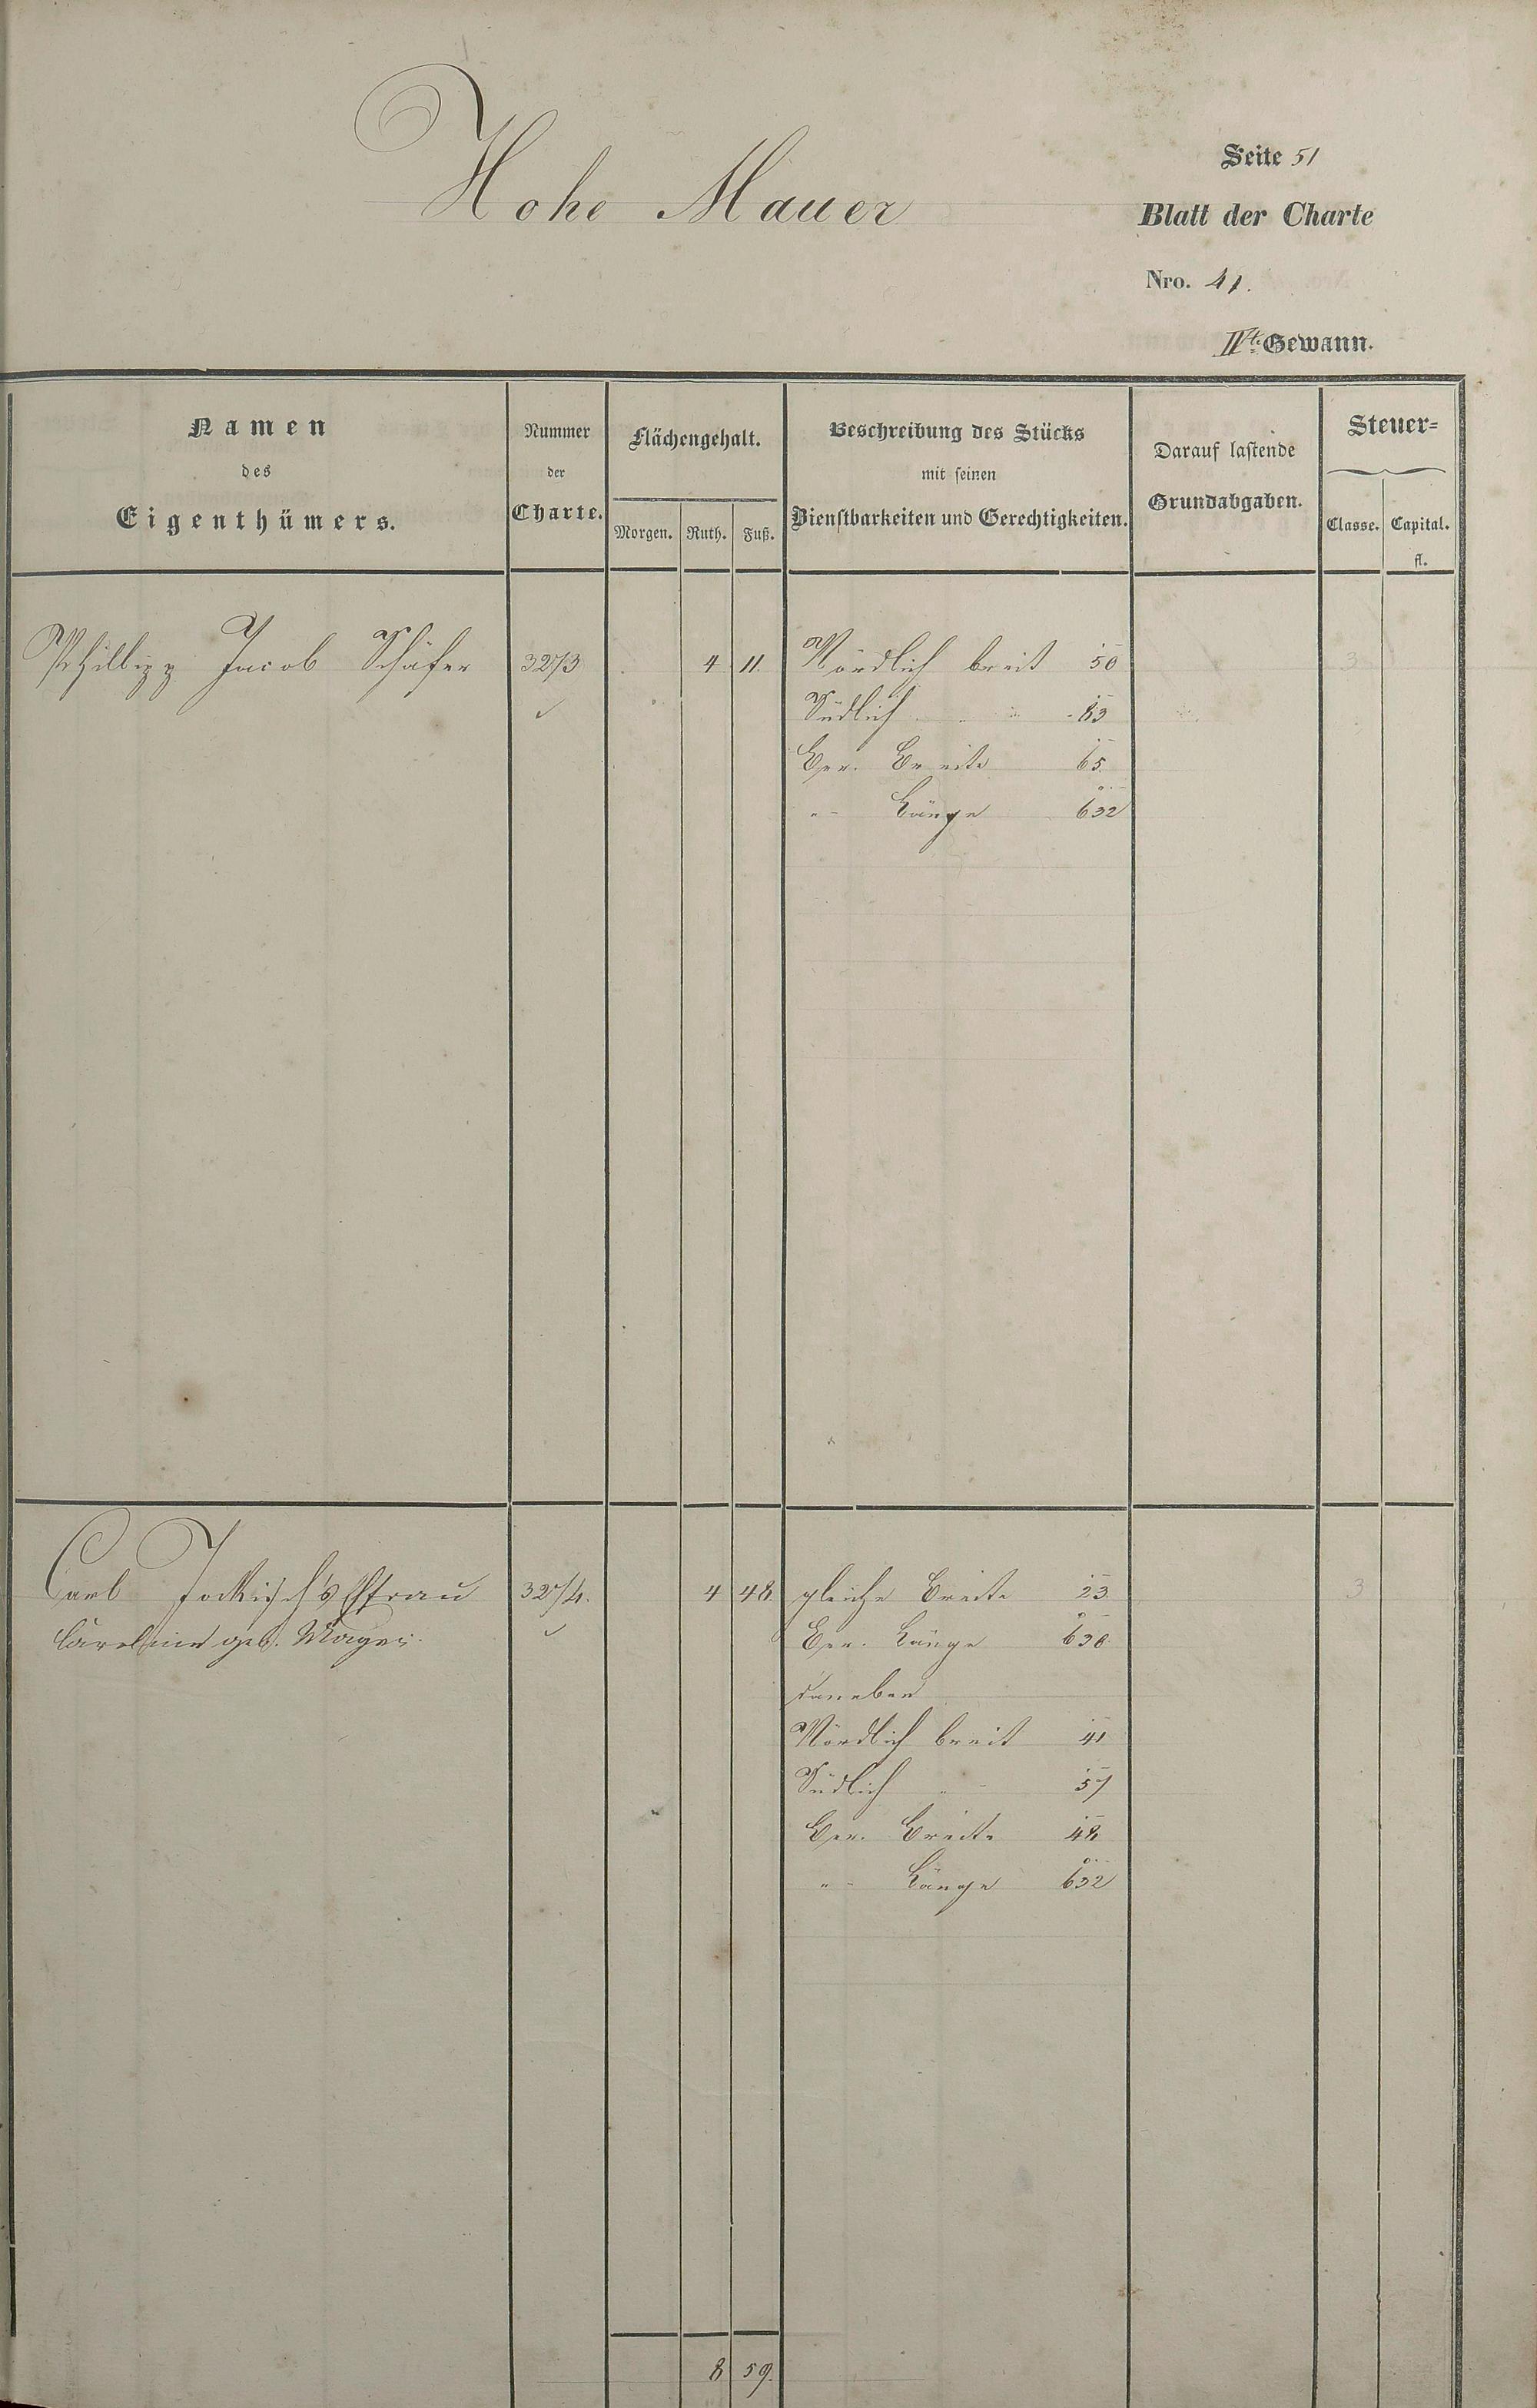 Hohe Mauer
Seite 51
Blatt der Charte
Nro. 41.
IVte Gewann.
Namen
des
Eigenthümers.
Nummer
der
Charte.
Flächengehalt.
Morgen. Ruth. Fuß.
Beschreibung des Stücks
mit seinen
Dienstbarkeiten und Gerechtigkeiten.
Darauf lastende
Grundabgaben.
Steuer=
Classe. Capital.
fl.
Philipp Jacob Schäfer 3273 4 11. Nördlich breit 50 3
Südlich " " 83
Ger. Breite 65
" Länge 632
Carl Jockisch's Ehfrau 3274. 4 48. gleiche Breite 23 3
Caroline geb. Mayer. Ger. Länge 630
daneben
Nördlich breit 41
Südlich " 57
Ger. Breite 48
" Länge 632
8 59.